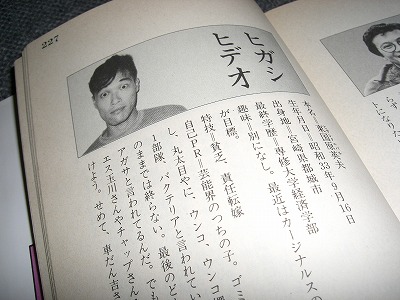 227
ヒガシ
ヒデオ
本名=東国原英夫
生年月日=昭和33年9月16日
出身地=宮崎県都城市
最終学歴=専修大学経済学部
趣味=別になし。最近はカージナルス
が目標。
特技=貧乏、責任転嫁
自己PR=芸能界のつちの子。ゴミ
し、丸太目やに、ウンコ、ウンコ
1部隊、バクテリアと言われてい
のままでは終らない。最後のど
アガサと言われてるんだ。でも
エス玉川さんやチャップさん
けよう。せめて、車だん吉さ
らず
トン
なりた